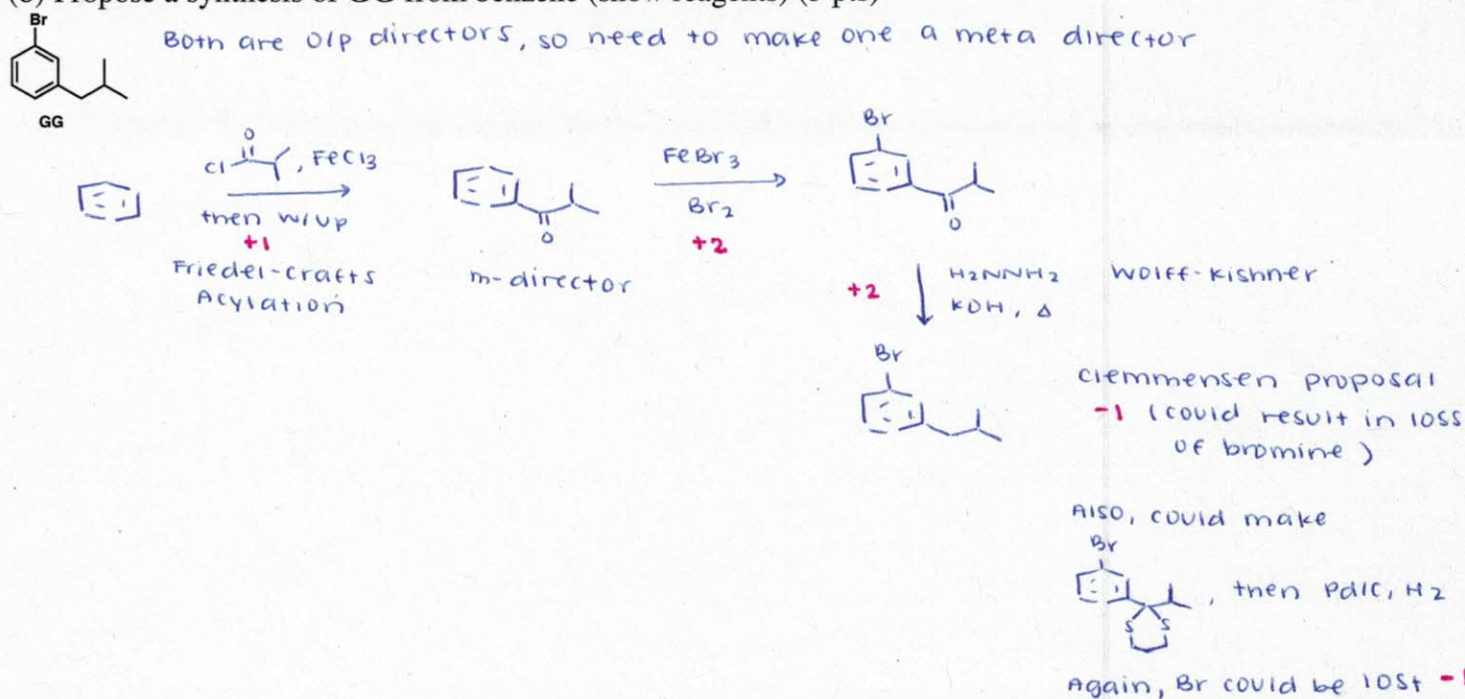 Br
Both are o/p directors, so need to make one a meta director
GG
O
Cl , FeCl3
then w/up
+1
Friedel-Crafts
Acylation
O
m-director
FeBr3
Br2
+2
Br
O
+2
H2NNH2
KOH, Δ
Wolff-Kishner
Br
Clemmensen proposal
-1 (could result in loss
of bromine)
Also, could make
Br
S S
, then Pd/C, H2
Again, Br could be lost